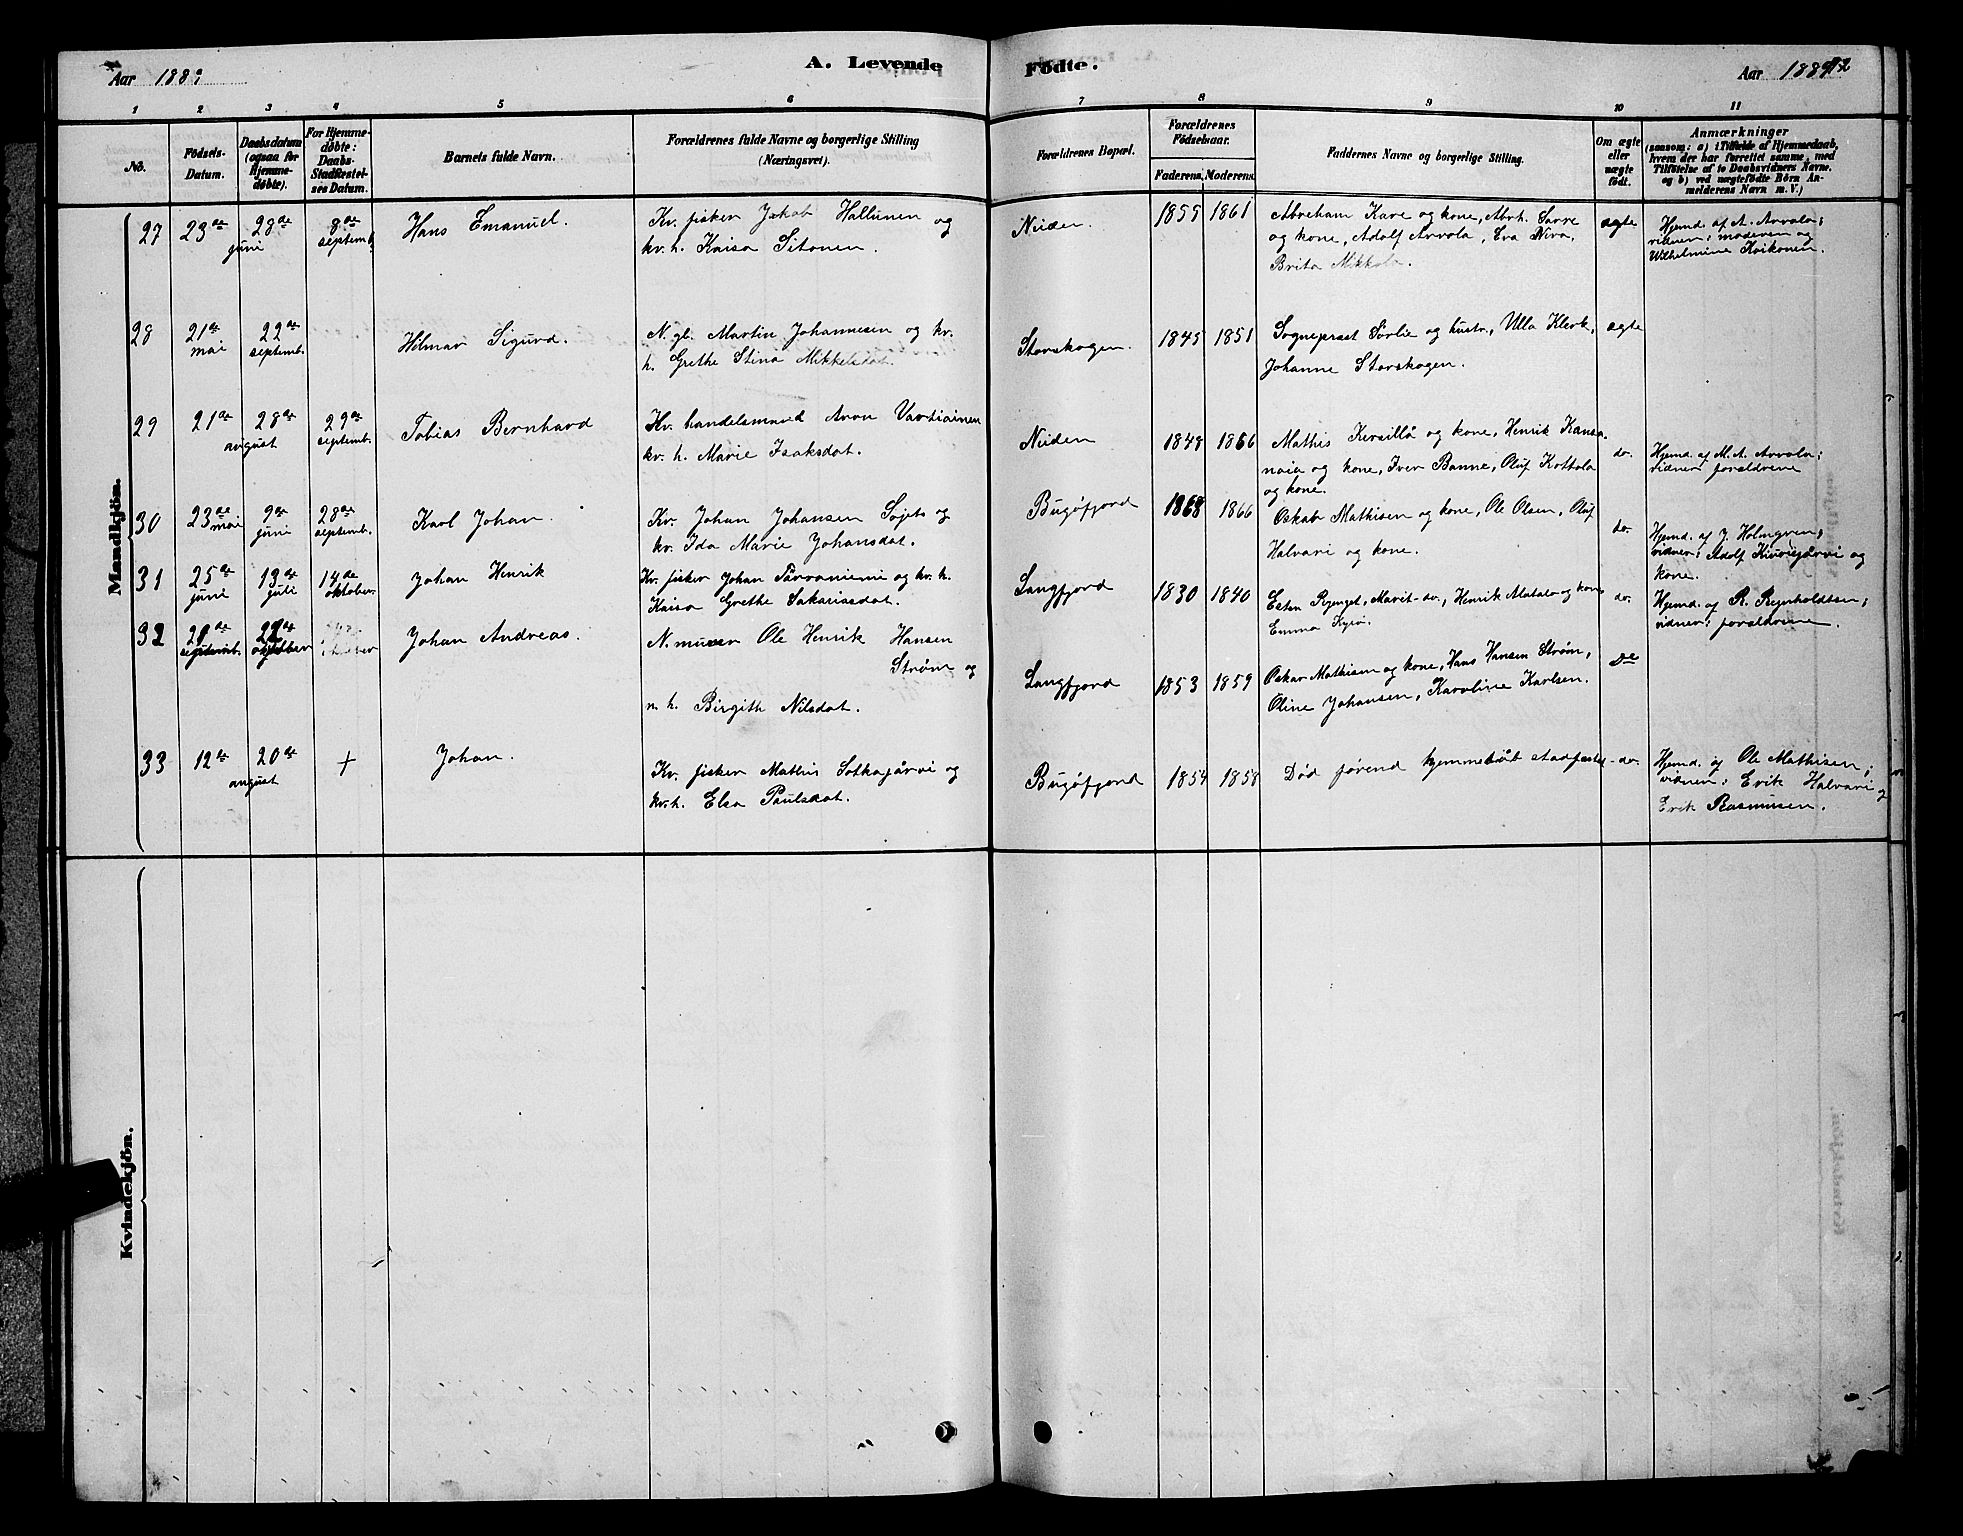 Aar 1889
A. Levende Fødte.
Aar 1889
12
1 2 3 4 5 6 7 8 9 10 11
No.
Fødsels-
Datum.
Daabsdatum
(ogsaa for
Hjemme-
døbte).
For Hjemme-
døbte:
Daabs-
Stadfæstel-
ses Datum.
Barnets fulde Navn.
Forældrenes fulde Navne og borgerlige Stilling
(Næringsvei).
Forældrenes Bopæl.
Forældrenes
Fødselsaar.
Faderens. Moderens.
Faddernes Navne og borgerlige Stilling.
Om ægte
eller
uægte
født.
Anmærkninger
(saasom: a) i Tilfælde af Hjemmedaab,
hvem der har forrettet samme, med
Tilføielse af to Daabsvidners Navne.
og b) ved uægtefødte Børn An-
melderens Navn m. V.)
Mandkjön.
27 23de 28de juni 8de septemb. Hans Emanuel.
Kv. fisker Jakob Hallunen og
kv. h. Kaisa Sitonen.
Neiden 1859 1861
Abraham Kare og kone, Abrh. Sarre
og kone, Adolf Arvola, Eva Niva,
Brita Mikkola.
ægte
Hjemd. af A. Arvola;
vidner: moderen og
Wilhelmine Koikonen.
28 21de mai 22de septemb. Hilmar Sigurd.
N. gb. Martin Johannesen og kv.
h. Grethe Stina Mikkelsdat.
Storskogen. 1845 1851
Sogneprest Sørlie og hustr., Ulla Klerk,
Johanne Storskogen.
ægte
29 21de 28de august 29de septemb. Tobias Bernhard
Kv. handelsmand Aron Vartiainen
kv. h. Marie Isaksdat.
Neiden 1848 1866
Mathis Kersillå og kone, Henrik Kansa-
naia og kone, Iver Banne, Oluf Kottola
og kone.
do.
Hjemd. af M. A. Arvola;
vidner forældrene
30 23de mai 9de juni 28de septemb. Karl Johan.
Kv. Johan Johansen Søjets og
kv. Ida Marie Johansdat.
Bugøfjord 1868 1866
Oskar Mathisen og kone, Ole Olsen, Oluf
Halvari og kone.
do.
Hjemd. af J. Holmgren;
vidner: Adolf Kiviejärvi og
kone.
31 25de juni 13de juli 14de oktober. Johan Henrik
Kv. fisker Johan Törvaniemi og kv. h.
Kaisa Grethe Sakariasdat.
Langfjord 1830 1840
Esten Renget, Marit do., Henrik Matala og kone
Emma Kyrö.
do.
Hjemd. af R. Reinholdtsen;
vidner: forældrene.
32 21de septemb. 22de oktober Johan Andreas.
N. murer Ole Henrik Hansen
Strøm og
n. h. Birgith Nilsdat.
Langfjord 1853 1859
Oskar Mathisen og kone, Hans Hansen Strøm,
Oline Johansen, Karoline Karlsen.
do
33 12de 20de august + Johan.
Kv. fisker Mathis Sotkajärvi og
kv. h. Elsa Paulsdat.
Bugøfjord 1854 1858
Død førend hjemmedåb stadfæstet
do.
Hjemd. af Ole Mathisen;
vidner: Erik Halvari og
Erik Rasmusen.
Kvindekjön.